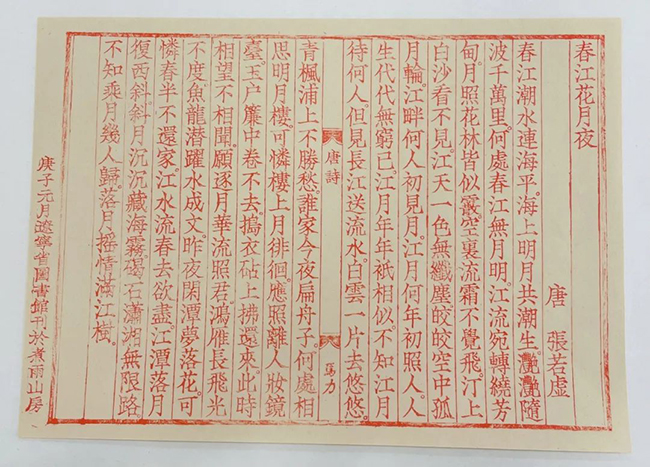 春江花月夜
唐 張若虛
春江潮水連海平。海上明月共潮生。灧灧隨
波千萬里。何處春江無月明。江流宛轉繞芳
甸。月照花林皆似霰。空裏流霜不覺飛。汀上
白沙看不見。江天一色無纖塵。皎皎空中孤
月輪。江畔何人初見月。江月何年初照人。人
生代代無窮已。江月年年衹相似。不知江月
待何人。但見長江送流水。白雲一片去悠悠。
唐詩
馬力
青楓浦上不勝愁。誰家今夜扁舟子。何處相
思明月樓。可憐樓上月徘徊。應照離人妝鏡
臺。玉户簾中卷不去。搗衣砧上拂還來。此時
相望不相聞。願逐月華流照君。鴻雁長飛光
不度。魚龍潛躍水成文。昨夜閑潭夢落花。可
憐春半不還家。江水流春去欲盡。江潭落月
復西斜。斜月沉沉藏海霧。碣石瀟湘無限路
不知乘月幾人歸。落月摇情滿江樹
庚子元月遼寧省圖書館刊於煮雨山房